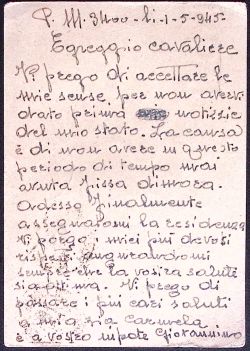 P. M. 3400 - li - 1 - 5 - 945 -
Egreggio cavaliere
Vi prego di accettare le
mie scuse, per non avervi
dato prima notizie
del mio stato. La causa
è di non avere in questo
periodo di tempo mai
avuta fissa dimora.
Adessa finalmente
assegnatomi la residenza
Vi porgo i miei più devosi
rispetti augurandomi
sempre che la vostra salute
sia ottima. Vi prego di
passare i più cari saluti
a mia zia Carmela
e a vostro nipote Giovannino